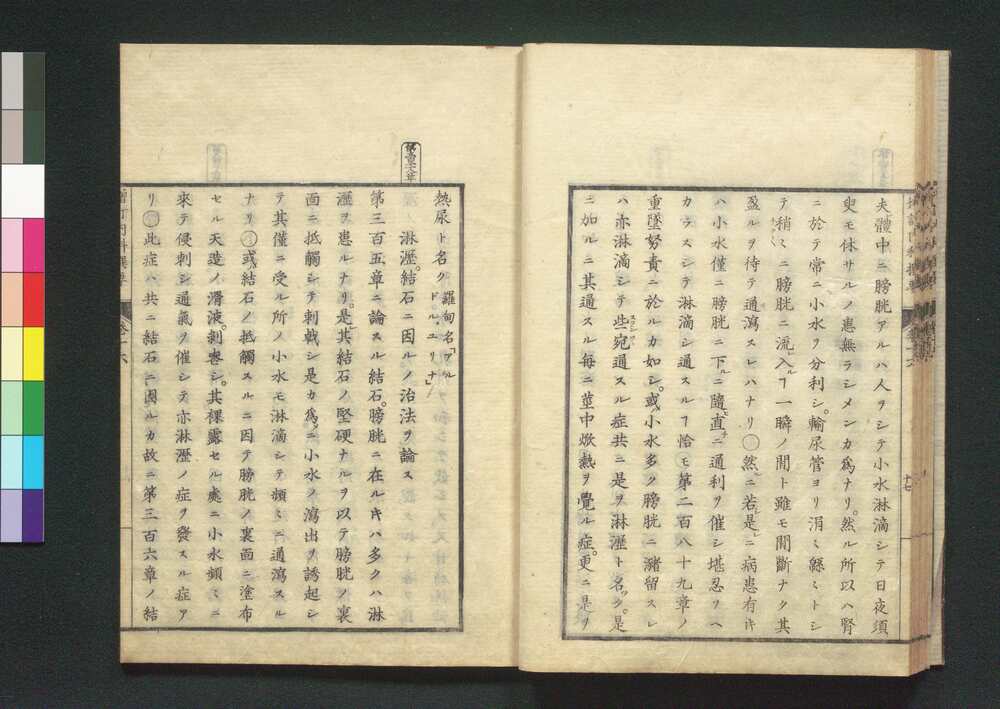 夫レ體中ニ膀胱アルハ人ヲシテ小水淋滴シテ日夜須
臾モ休サルノ患無ラシメンカ爲ナリ。然ル所以ハ腎
ニ於テ常ニ小水ヲ分利シ。輸尿管ヨリ涓ミ緜ミトシ
テ稍ミニ膀胱ニ流入ルヿ一瞬ノ間ト雖モ間斷ナク其
盈ルヲ待テ通瀉スレハナリ〇然ルニ若シ是ニ病患有キ
ハ小水僅ニ膀胱ニ下ルニ隨ヒ直ニ通利ヲ催シ堪忍ヲヘ
カラスシテ淋滴シ通スルヿ恰モ第二百八十九章ノ
重墜努責ニ於ルカ如シ。或ハ小水多ク膀胱ニ瀦留スレ
ハ亦淋滴シテ些宛通スル症共ニ是ヲ淋瀝ト名ク。是
ニ加ルニ其通スル毎ニ莖中焮熱ヲ覺ル症。更ニ是ヲ
熱尿ト名ク羅甸名「ブルドル・ユリナ」
淋瀝。結石ニ因ルノ治法ヲ論ス
第三百五章ニ論スル結石。膀胱ニ在ルキハ多クハ淋
瀝ヲ患ルナリ。是レ其結石ノ堅硬ナルヲ以テ膀胱ノ裏
面ニ抵觸シテ刺戟シ是カ爲メニ小水ノ瀉出ヲ誘起シ
テ其僅ニ受ル所ノ小水モ淋滴シテ頻ミニ通瀉スル
ナリ〇或ハ結石ノ抵觸スルニ因テ膀胱ノ裏面ニ塗布
セル天造ノ滑液。剥啬シ。其裸露セル處ニ小水頻ミニ
來テ侵刺シ通氣ヲ催シテ亦淋瀝ノ症ヲ發スル症ア
リ〇此症ハ共ニ結石ニ因ルカ故ニ第三百六章ノ結